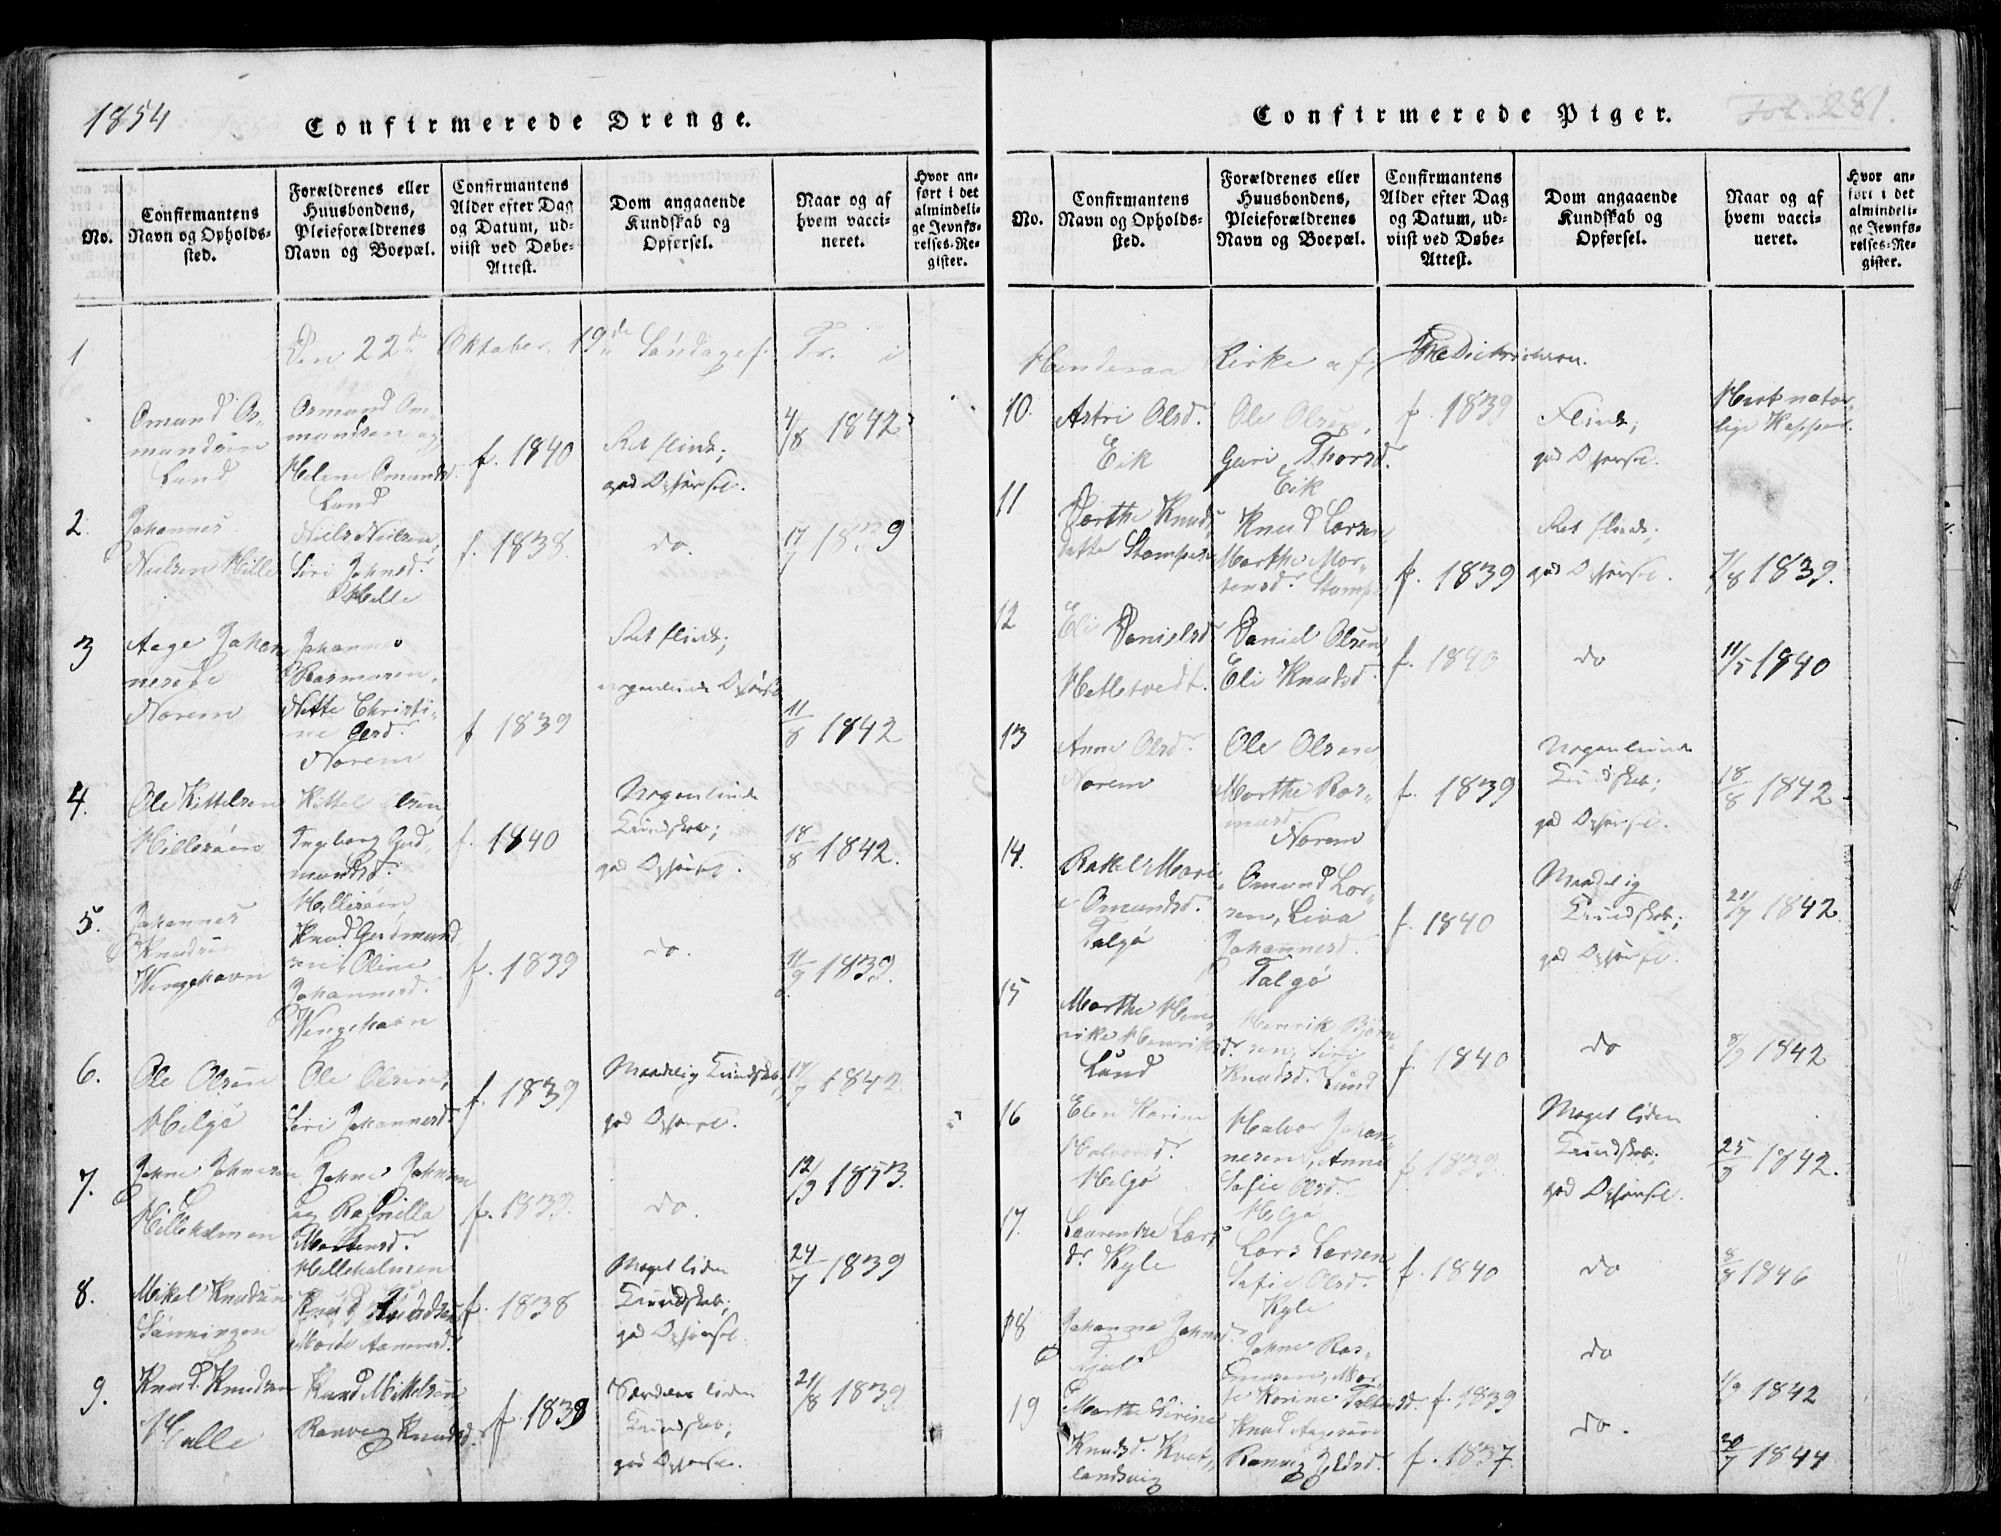 1854
Confirmerede Drenge.
No.
Confirmantens
Navn og Opholds-
sted.
Forældrenes eller
Huusbondens,
Pleieforældrenes
Navn og Boepæl.
Confirmantens
Alder efter Dag
og Datum, ud-
viist ved Døbe-
Attest.
Dom angaaende
Kundskab og
Opførsel.
Naar og af
hvem vacci-
neret.
Hvor an-
ført i det
almindeli-
ge Jevnfø-
relses-Re-
gister.
Den 22de Oktober. 19de Søndag ef. Tr. i
1
Omund Os-
mundsen
Lund
Osmund Om-
mundsen og
Helene Omunds.
Lund
f. 1840
Ret flink;
god Opførsel.
4/8 1842
2.
Johannes
Nielsen Hille
Niels Nielsen,
Siri Johnsd.
Hille
f. 1838.
do.
17/7 1839
3
Aage Johan
nesen
Norem
Johannes
Rasmusen,
Mette Christi-
ne Olsd.
Norem
f 1839
Ret flink;
nogenlunde Opførsel
11/8 1842
4.
Ole Kittelsen
Hillesøen
Kittel Olsen,
Ingeborg Gud-
mundsd.
Hillesøen
f. 1840
Nogenlunde
Kundskab;
god Opførsel.
18/8 1842.
5.
Johannes
Knudsen
Wengehavn
Knud Gudmund
sen, Oline
Johannesd.
Wengehavn
f. 1839
do.
11/9 1839.
6.
Ole Olsen
Helgø
Ole Olsen,
Siri Johannesd.
f. 1839
Maadelig Kundskab,
god Opførsel.
17/7 1842
7.
Johne Johnesen
Hilleholmen
Johne Johnsen
og Ragnilla
Mortensd.
Hilleholmen
f. 1839.
do.
12/9 1853.
8.
Mikel Knudsen
Sønningen
Knud Knudsen
f. 1838
Meget liden
Kundskab;
god Opførsel.
24/7 1839
9.
Knud Knudsen
Halle
Knud Mikkelsen
Ranveg Knudsd.
f. 1839
Særdeles liden
Kundskab;
god Opførsel.
21/8 1839
Confirmerede Piger.
Fol. 281.
No.
Confirmantens
Navn og Opholds-
sted.
Forældrenes eller
Huusbondens,
Pleieforældrenes
Navn og Boepæl.
Confirmantens
Alder efter Dag
og Datum, ud-
viist ved Døbe-
Attest.
Dom angaaende
Kundskab og
Opførsel.
Naar og af
hvem vacci-
neret.
Hvor an-
ført i det
almindeli-
ge Jevnfø-
relses-Re-
gister.
Kirke af
10.
Astri Olsd.
Eik
Ole Olsen,
Guri Thorsd.
Eik
f. 1839
Flink,
god Opførsel.
Havt natur-
lige Kopper.
11
Dorthe Knuds
datter
Knud Larsen
Marthe Mor-
tensd.
f. 1839
Ret flink;
god Opførsel.
7/8 1839.
12
Eli Danielsd
Hetletvedt.
Daniel Olsen
Eli Knudsd.
f. 1840
do
11/5 1840
13
Anne Olsd.
Norem
Ole Olsen
Marthe Ras-
musd.
Norem
f. 1839
Nogenlunde
Kundskab;
god Opførsel.
18/8 1842
14.
Rakel Mari
e Omundsd.
Talgø
Omund Lar-
sen, Liva
Johannesd.
Talgø
f. 1840
Maadelig
Kundskab;
god Opførsel.
21/7 1842
15
Marthe Hen-
rike Henriksd.
Lund
Henrik Bjørn-
sen, Siri
Knudsd. Lund
f. 1840
do
8/9 1842
16
Elen Karine
Halvorsd.
Helgø
Halvor Johan-
nesen, Anne
Sofie Olsd.
Helgø
f. 1839.
Meget liden
Kundskab;
god Opførsel.
1842.
17.
Laurentze Lars
dr. Kyle
Lars Larsen
Sofie Olsd.
Kyle
f. 1840
do
8/8 1846
18
Johanne Johnsd.
Johne Ras-
musen, Mar-
f. 1839
do
1842
19
Marthe Sirine
Knudsd. Kvit-
landsvig
Knud Aagesen
f. 1837.
do.
1844